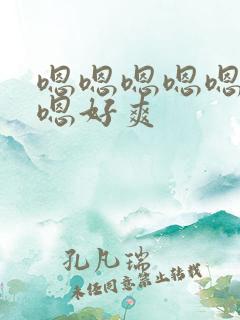 嗯嗯嗯嗯嗯
嗯好爽
孔凡瑞
未经同意禁止转载